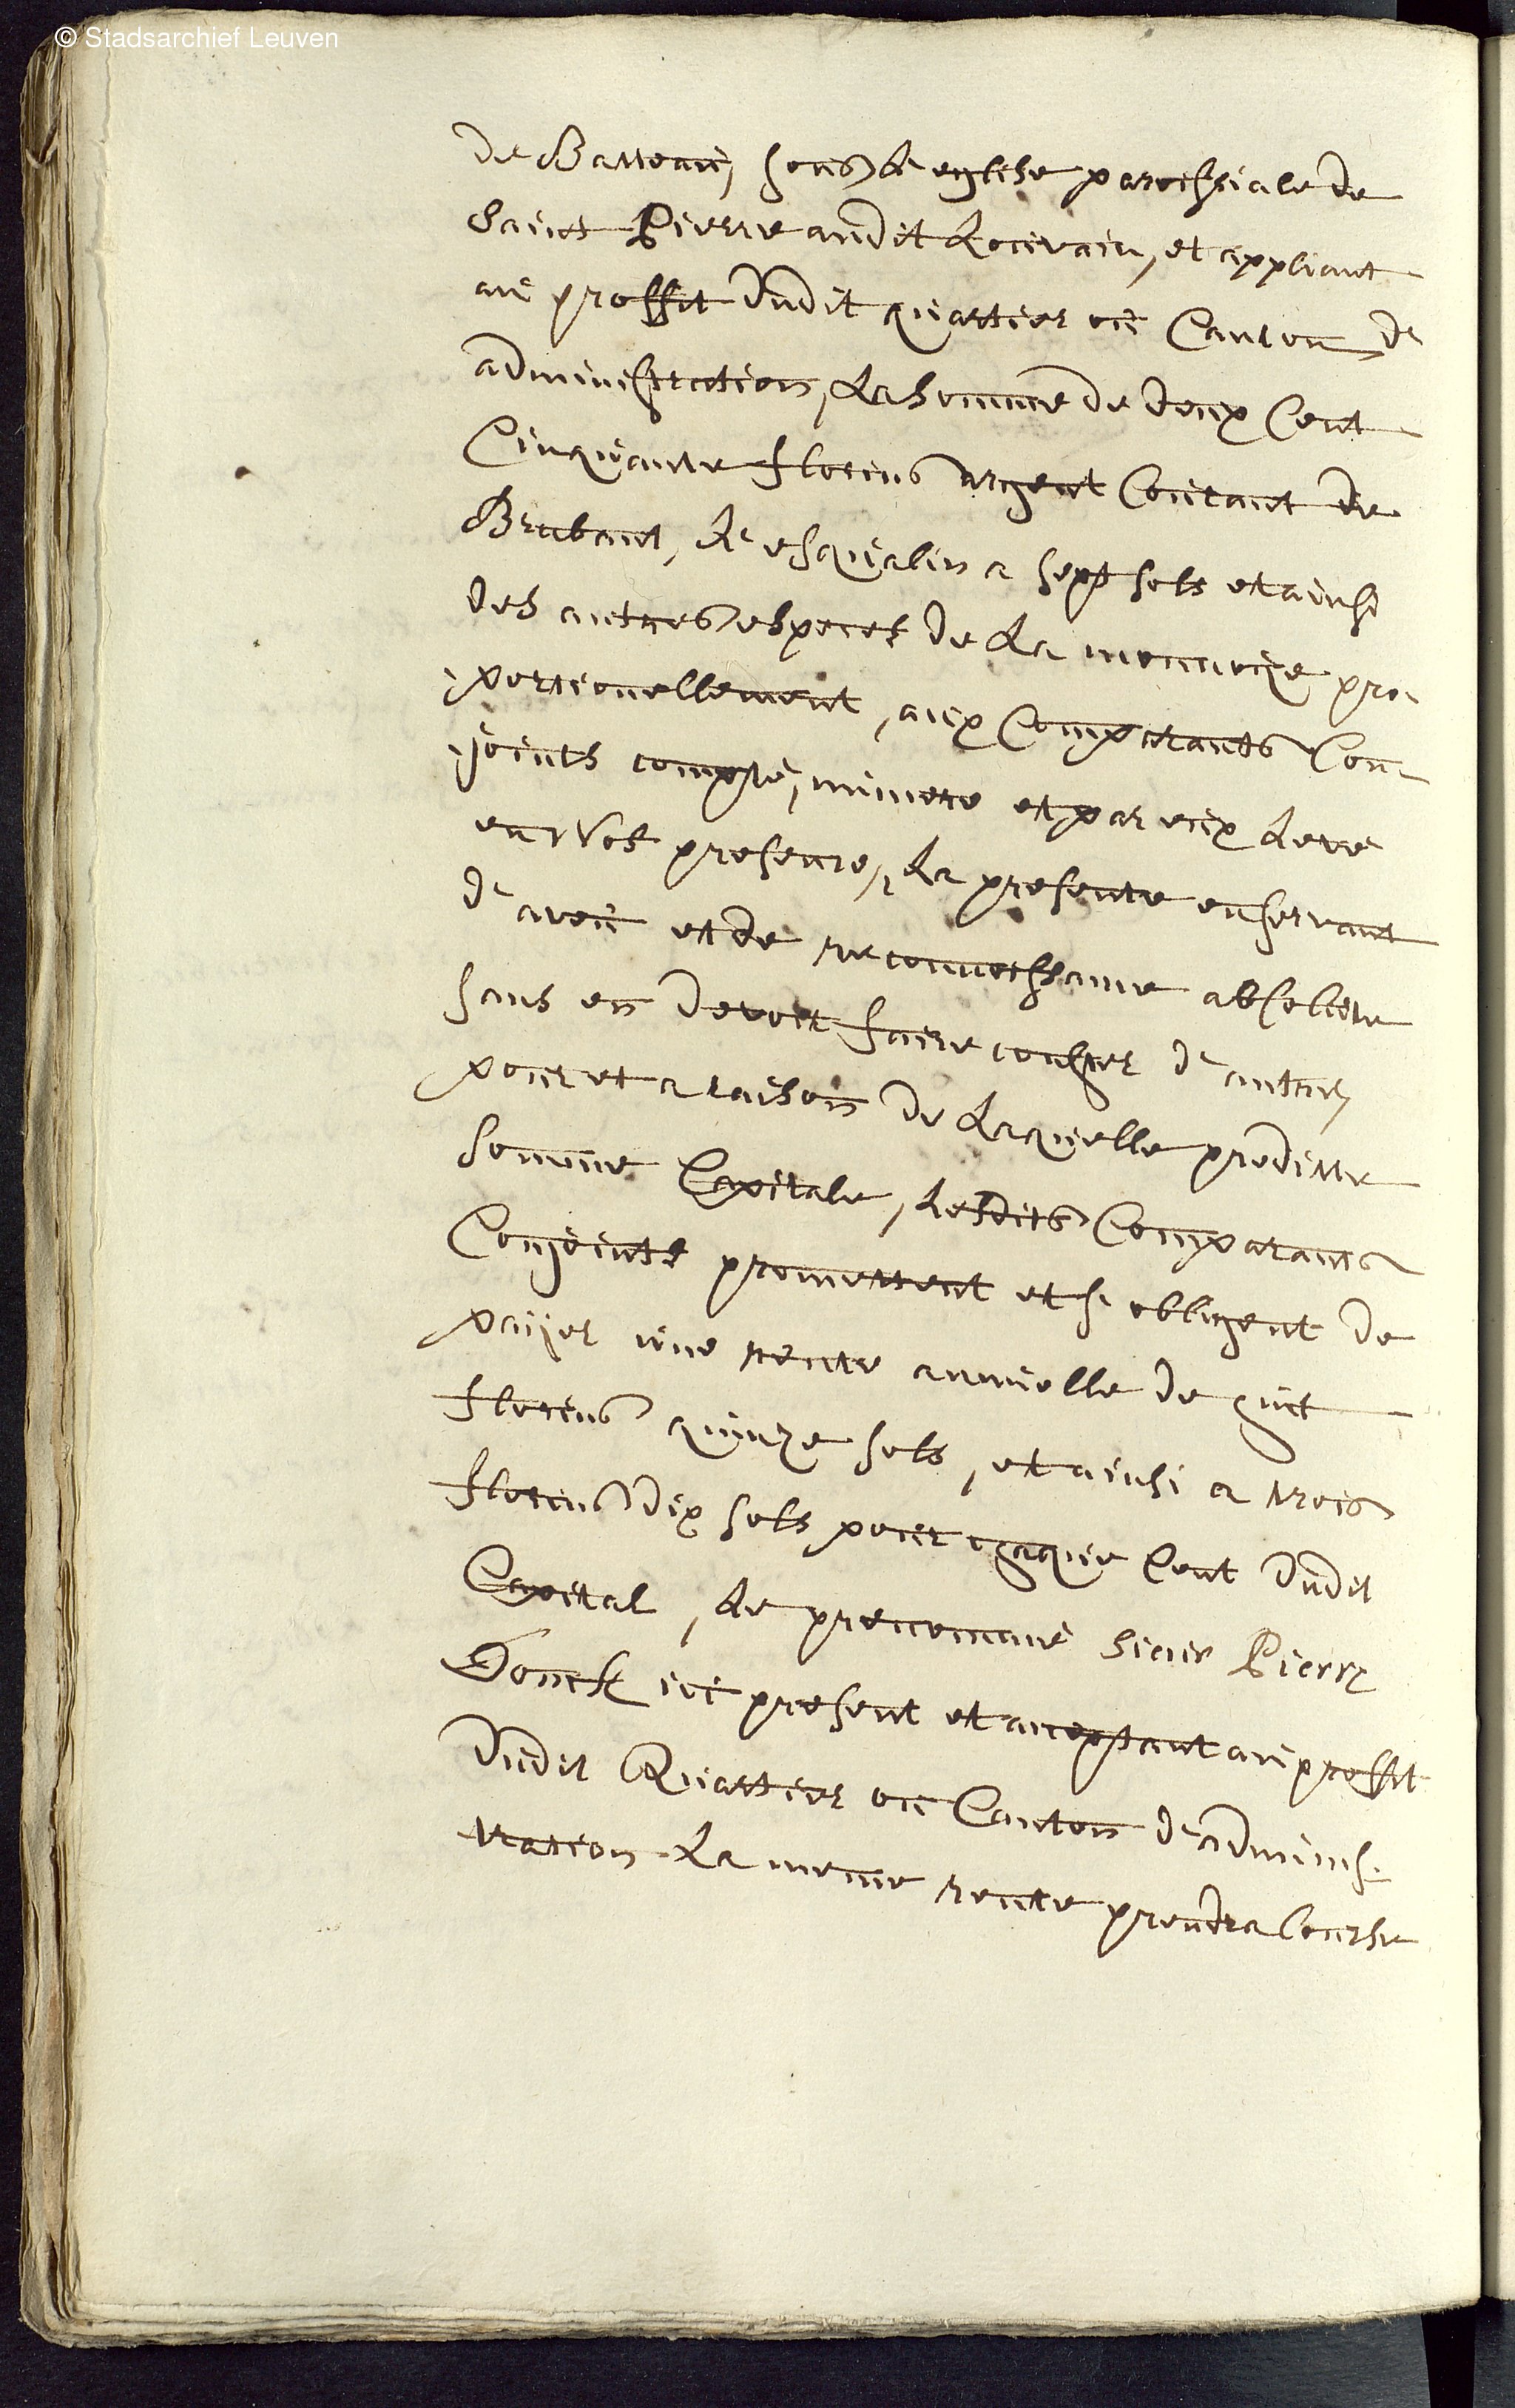 © Stadsarchief Leuven
de Batteau, sous l'eglise paroissiale de
Saint Pierre audit Louvain, et appliant
au proffit dudit quartier ou Canton d'
administration, La Somme de deux Cent
Cinquante florins argent Courant de
Brabant, l'esqualin a sept sols et ainsi
des autres especes de La monnoije pro-
portionellement, aux Comparants Con-
joints compté, numere et par eux Levé
en Nos presence, La presente en servant
d'aveu et de reconnoissance absolute
sans en devoir faire conster d'autre,
pour et a raison de Laquelle preditte
Somme Capitale, Lesdits Comparants
Conjoints promettent et s'obligent de
paijer une rente annuelle de huit
florins quinze sols, et ainsi a trois
florins dix sols pour chaque Cent dudit
Capital, Le prenommé Sieur Pierre
Donck ici present et acceptant au proffit
dudit Quartier ou Canton d'adminis-
tration La meme rente prendra Course